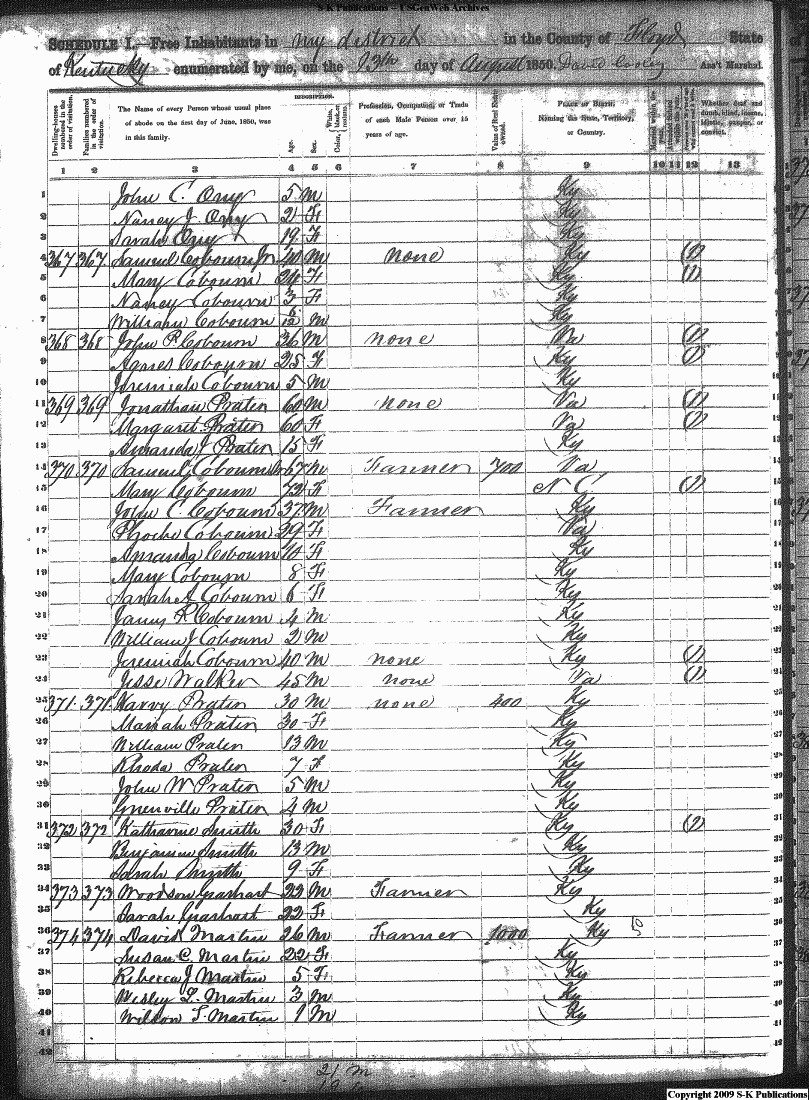 S-K Publications - USGenWeb Archives
SCHEDULE I.—Free Inhabitants in my district in the County of Floyd State
of Kentucky enumerated by me, on the 13th day of August 1850. Ass't Marshal.
Dwelling-houses numbered in the order of visitation.
Families numbered in the order of visitation.
The Name of every Person whose usual place of abode on the first day of June, 1850, was in this family.
DESCRIPTION.
Age.
Sex.
Color,
Profession, Occupation, or Trade of each Male Person over 15 years of age.
Value of Real Estate owned.
PLACE OF BIRTH. Naming the State, Territory, or Country.
Married within the year.
Whether deaf and dumb, blind, insane, idiotic, pauper, or convict.
1 2 3 4 5 6 7 8 9 10 11 12 13
1 John C. 5 M Ky
2 Nancy J. 2 F Ky
3 Sarah 19 F Ky
4 367 367 Samuel Cobourn Jr 40 M none Ky (1)
5 Mary Cobourn 24 F Ky (1)
6 Nancy Cobourn 3 F Ky
7 William Cobourn 6/12 M Ky
8 368 368 John P. Cobourn 36 M none Va (1)
9 Agnes Cobourn 25 F Ky (1)
10 Jeremiah Cobourn 5 M Ky
11 369 369 Jonathan Prater 60 M none Va (1)
12 Margaret Prater 60 F Va (1)
13 Amanda J Prater 15 F Ky
14 370 370 Samuel Cobourn 67 M Farmer 700 Va
15 Mary Cobourn 73 F N C (1)
16 John C Cobourn 37 M Farmer Ky
17 Phoebe Cobourn 39 F Va
18 Amanda Cobourn 10 F Ky
19 Mary Cobourn 8 F Ky
20 Sarah A Cobourn 6 F Ky
21 James R Cobourn 4 M Ky
22 William J Cobourn 2 M Ky
23 Jeremiah Cobourn 40 M none Ky (1)
24 Jesse Walker 45 M none Va (1)
25 371 371 Harvy Prater 30 M none 400 Ky
26 Mariah Prater 30 F Ky
27 William Prater 13 M Ky
28 Rhoda Prater 7 F Ky
29 John W Prater 5 M Ky
30 Greenville Prater 4 M Ky
31 372 372 Katharine Smith 30 F Ky (1)
32 Benjamin Smith 13 M Ky
33 Sarah Smith 9 F Ky
34 373 373 Woodson Gearhart 22 M Farmer Ky
35 Sarah Gearhart 22 F Ky
36 374 374 David Martin 26 M Farmer 1000 Ky
37 Susan C. Martin 22 F Ky
38 Rebecca J Martin 5 F Ky
39 Wesley L. Martin 3 M Ky
40 Wilson S. Martin 1 M Ky
41
42
21 M
Copyright 2009 S-K Publications